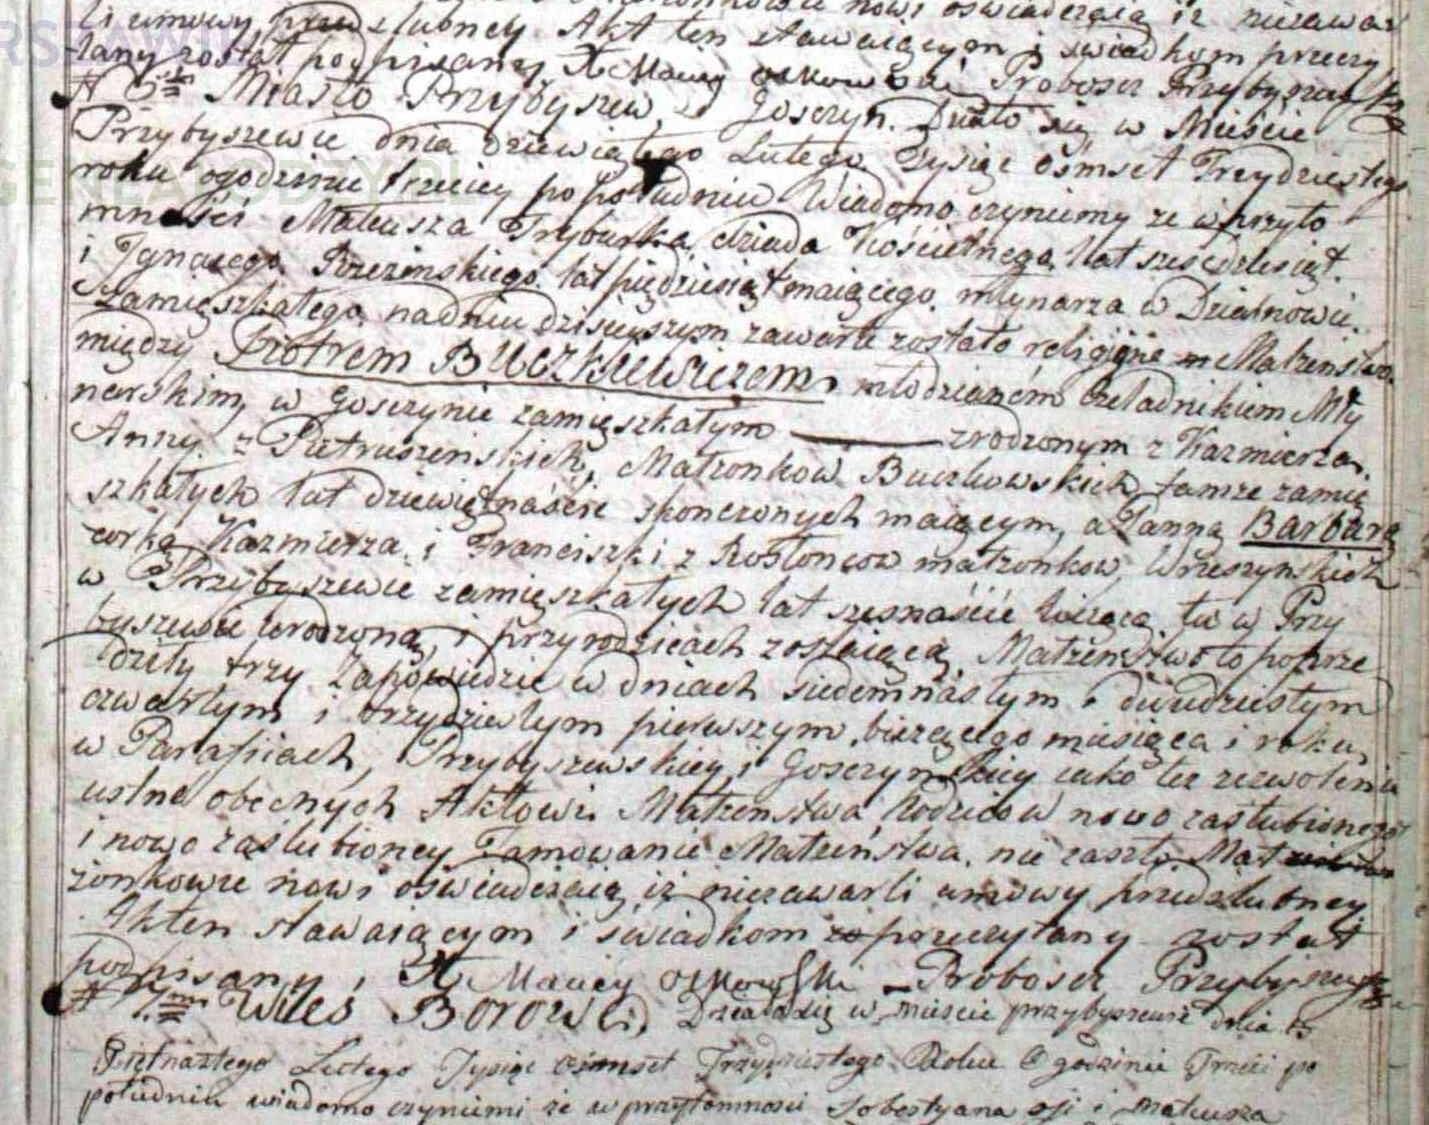 li umowy przedslubney Akt ten stawaiącym i swiadkom przeczy
tany został podpisany X Maucy oskowski Proboscz Przybyszew
# 6. Miasto Przybyszew, i Gosczyn. Działo się w Mieście
Przybyszewie dnia dziewiątego Lutego Tysiąc ośmset Trzydziestego
roku ogodzinie trzeciey popołudniu Wiadomo czyniemy ze w przyto
mności Mateusza Tryburka dziada Kościelnego lat sześćdziesiąt
i Ignacego Rzezinskiego lat pięćdziesiąt maiącego młynarza w
Zamięszkałego nadniu dzisieyszym zawarte zostało religiyne Małżenstwo
między Piotrem Buczkiewiczem, młodzianem Czeladnikiem Mły
narskim, w Gosczynie zamięszkałym zrodzonym z Kazmierza
Anny z Pietruszenskich, Małżonkow Buczkowskich tamze zamię
szkałych lat dziewiętnaście skonczonych maiącym, a Panną Barbarą
corką Kazmierza i Franciszki z Rosłoncow małżonkow, Wrzeszynskich
w Przybyszewie zamięszkałych lat szesnaście liczącą tu w Przy
byszewie urodzoną i przy rodzicach zostaiącą Małżenstwo to poprze
dziły trzy Zapowiedzie w dniach siedemnastym dwudziestym
czwartym i trzydziestym pierwszym bieżącego miesiąca i roku
w Parafiach, Przybyszewskiey i Gosczynskiey iako tez zezwolenie
ustne obecnych Aktowi Małżenstwa Rodzicow nowo zaslubionego
i nowo zaslubioney Tamowanie Małżeństwa nie zaszło Mał
żonkowie nowi oświadczaią iż niezawarli umowy przedslubney
Akt ten stawaiącym i świadkom przeczytany został
podpisany X Maucy oskowski Proboscz Przybyszewski
# 7. Wieś Borowe, Działo się w mieście przybyszewie dnia
Piętnastego Lutego Tysiąc osmset Trzydziestego Roku O godzinie Trzeci po
południu wiadomo czyniemi że w przytomnosci Sobestyana i Mateusza